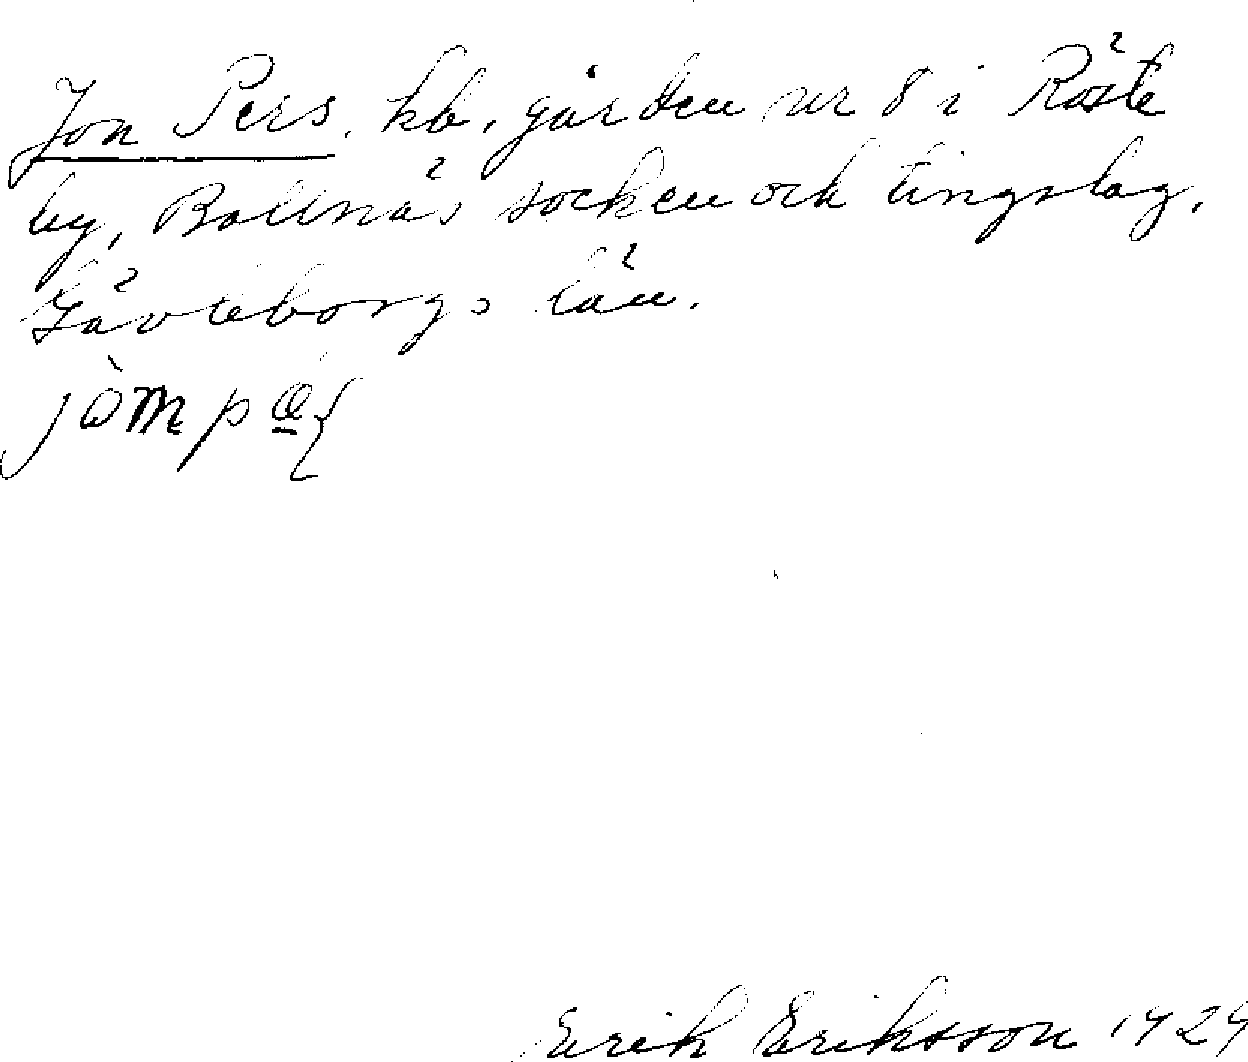 Jon Pers, kb. gården nr 8 i Röste
by, Bollnäs socken och tingslag,
Gävleborgs län.
Erik Eriksson 1929